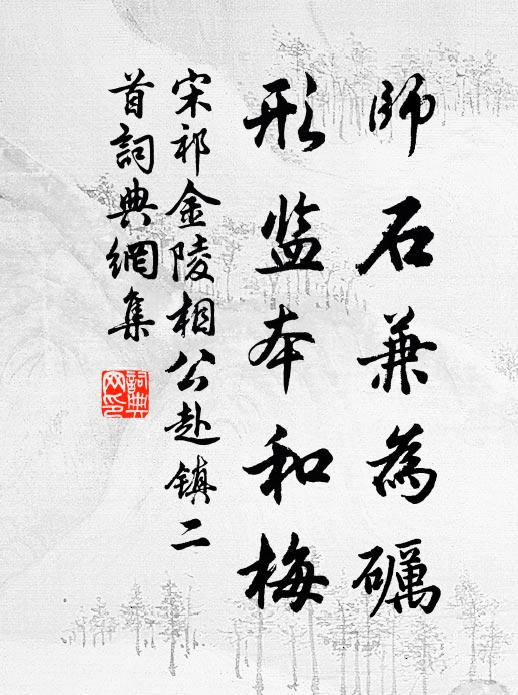 師石兼為礪
形监本和梅
宋祁金陵相公赴镇二
首詞典網集
詞典
网印